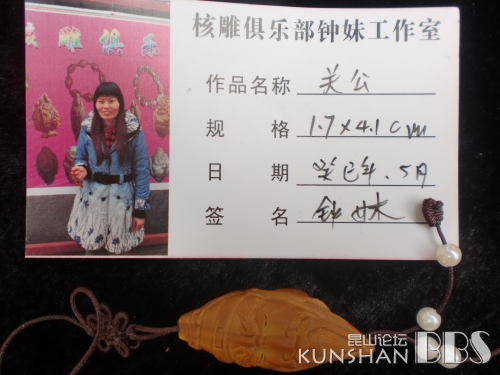 核雕俱乐部钟妹工作室
核雕俱乐
作品名称 关公
规 格 1.7×4.1cm
日 期 癸巳年.5月
签 名 钟妹
昆山论坛
KUNSHAN BBS